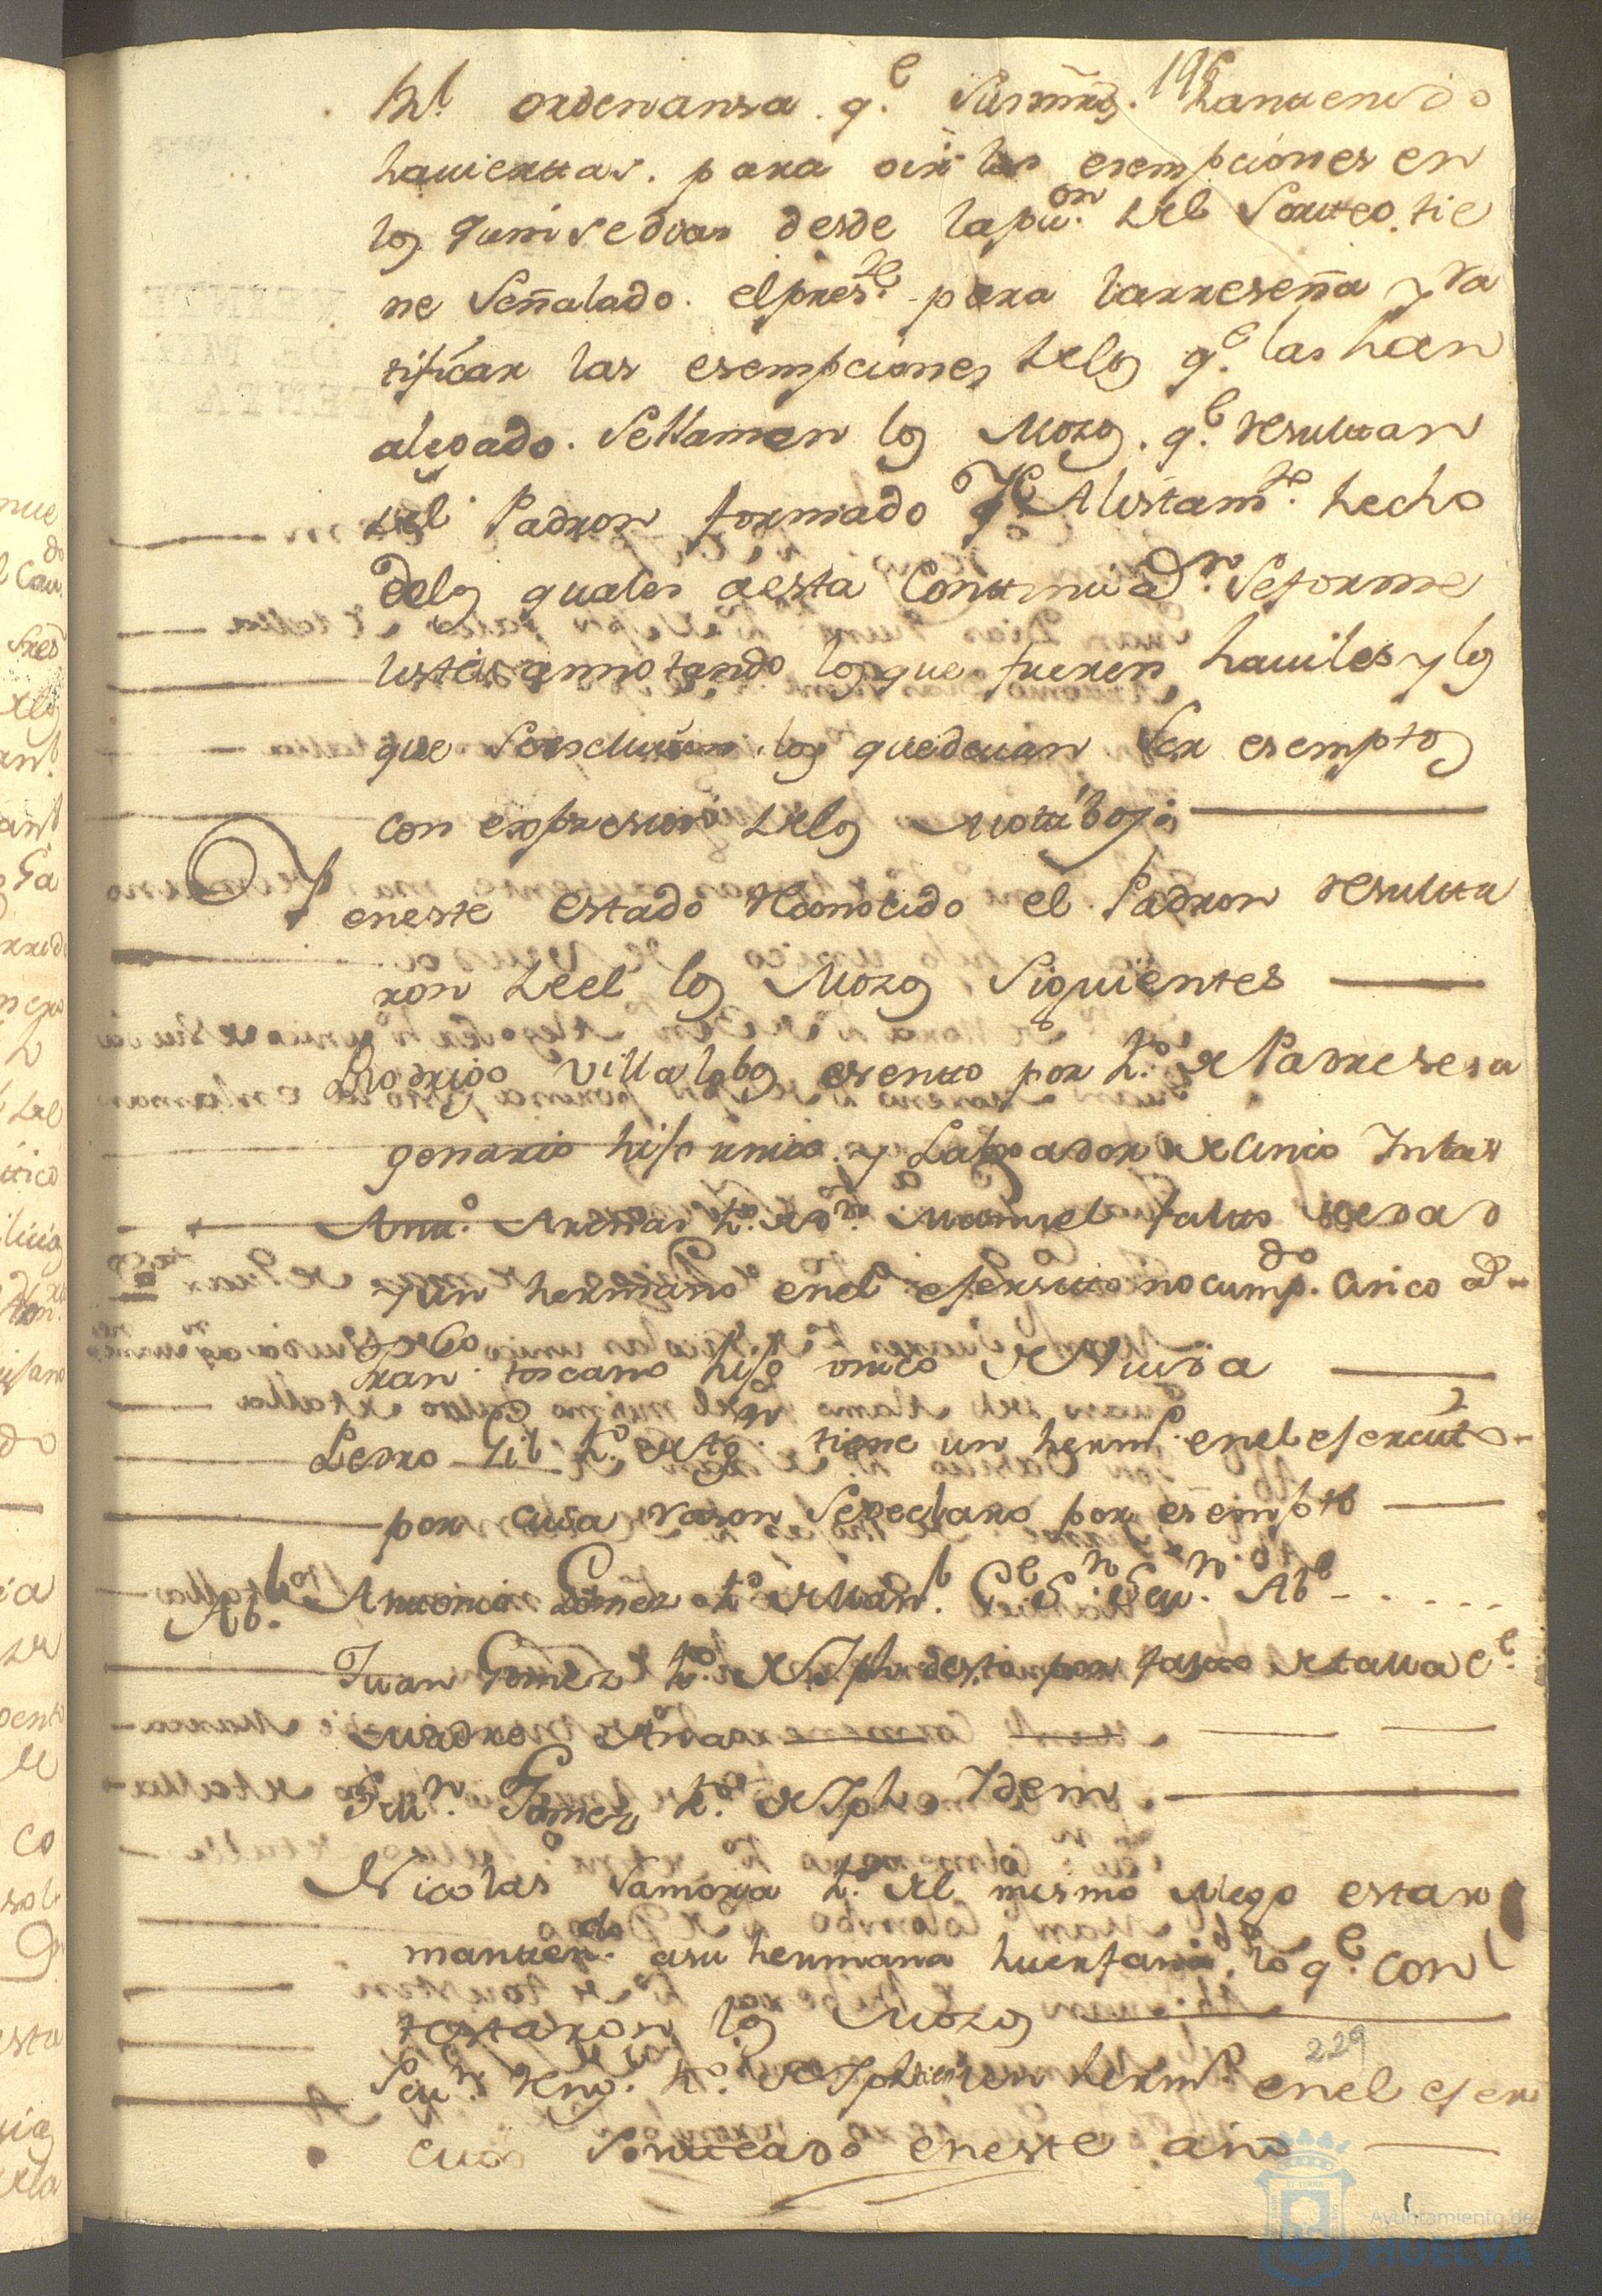 Rl. ordenansa. q.e Sus mrds. 196 han tenido
havierttas. para oir las esempciones en
los quinse dias desde la pu.on del Sortteo. tie
ne Señalado. el pres.te para la rreseña y ra
tificar las esempciones de los q.e las han
alegado. Se llaman los Mozos. q.e resulttan
del Padron formado y Alistam.to hecho
de los quales a esta Conttinuad.n Se forme
lista annotando los que fueren haviles y los
que los que devan Ser esemptos
con expresion de los Motibos
Y en este estado reconocido el Padron resultta
ron de el los Mozos Siguientes
Rodrigo Villalobos esentto por h.o de Padre sesa
genario hijo unico y Labrador
Antt.o Arenas h.o de Manuel falto de edad
y un hermano en el ejersitto no cump.do
Fran.co toscano hijo unico de Viuda
Pedro Gil h.o de tiene un herm.o en el ejercito
por cuia rason Se declaro por esempto
Ab.l Anttonio Gomez h.o de Man.l Ab.l
Juan Gomez h.o de Jph desta por falto de talla
Gomez h.o de Jph. Idem
Nicolas Samora h.o del mismo Alego estar
manten.do a su hermana huerfana lo q.e con
testaron los Mozos
h.o de Jph tiene un herm.o en el ejer
cito Sortteado en este año
229
Ayuntamiento de
HUELVA